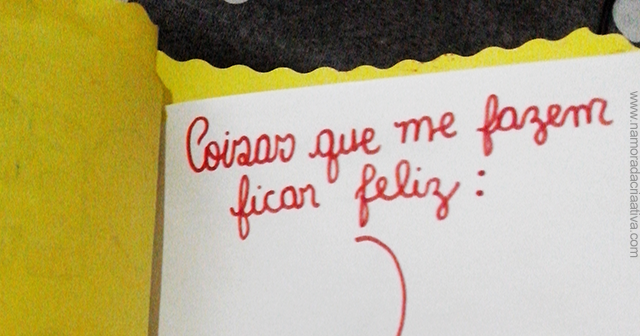 Coisas que me fazem
ficar feliz:
www.namoradacriaativa.com